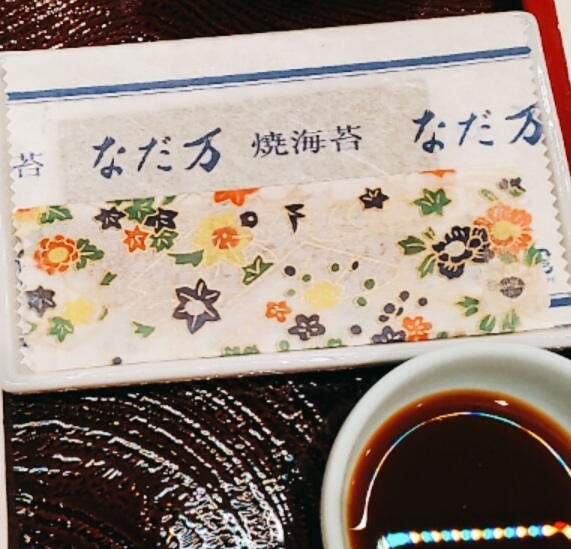 苔 なだ万 焼海苔 なだ万